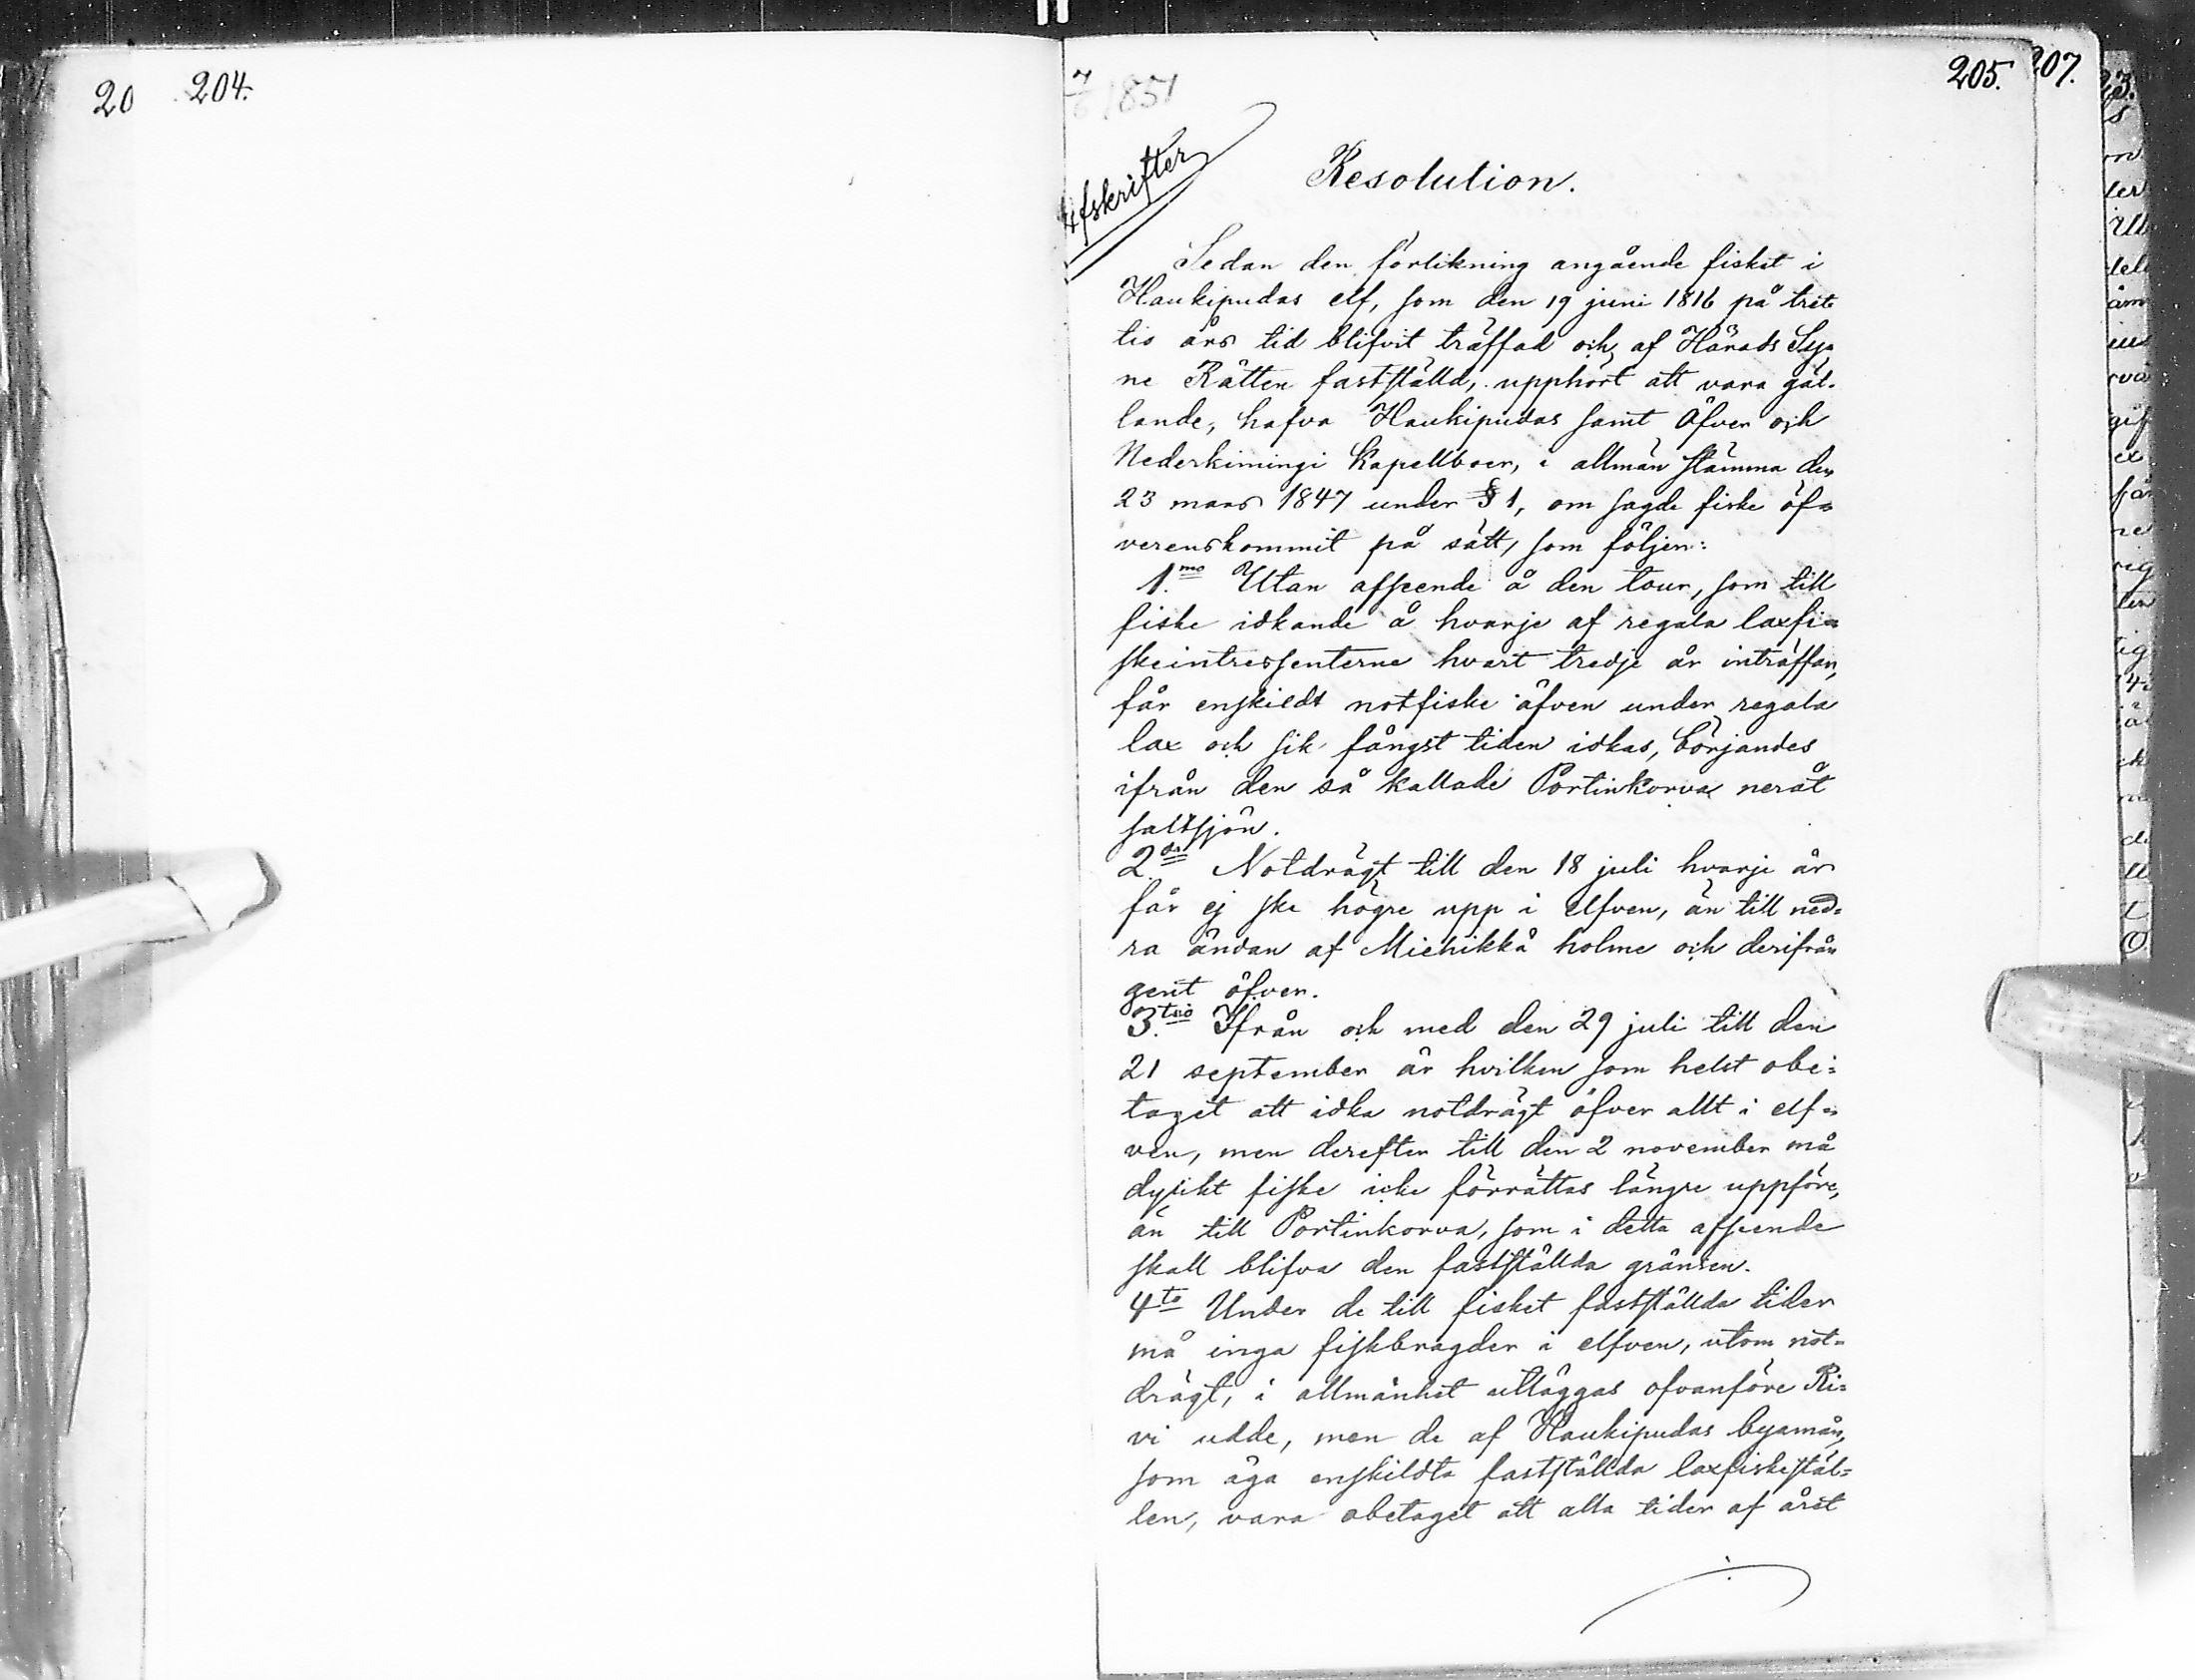 204.
205.
207.
7/6 1851
Afskrifter
Resolution.
Sedan den förlikning angående fisket i
Haukipudas elf, som den 19 juni 1816 på tret-
tio års tid blifvit träffad och af Härads Sy-
ne Rätten fastställd, upphört att vara gäl-
lande, hafva Haukipudas samt Öfver och
Nederkimingi Kapellboer, i allmän stämma den
23 mars 1847 under § 1, om sagde fiske öf-
verenskommit på sätt, som följer:
1.mo Utan afseende å den tour, som till
fiske idkande å hvarje af regala laxfi-
skeintressenterne hvart tredje år inträffar,
får enskildt notfiske äfven under regala
lax och sik fångst tiden idkas, börjandes
ifrån den så kallade Portinkorva neråt
saltsjön.
2.do Notdrägt till den 18 juli hvarje år
får ej ske högre upp i elfven, än till ned-
ra ändan af Miehikkä holme och derifrån
gent öfver.
3.tio Ifrån och med den 29 juli till den
21 september är hvilken som helst obe-
taget att idka notdrägt öfver allt i elf-
ven, men derefter till den 2 november må
dylikt fiske icke förrättas längre uppföre,
än till Portinkorva, som i detta afseende
skall blifva den fastställda gränsen.
4to Under de till fisket fastställda tider
må inga fiskbragder i elfven, utom not-
drägt, i allmänhet utläggas ofvanföre Ri-
vi udde, men de af Haukipudas byamän,
som äga enskildta fastställda laxfiskestäl-
len, vara obetaget att alla tider af året